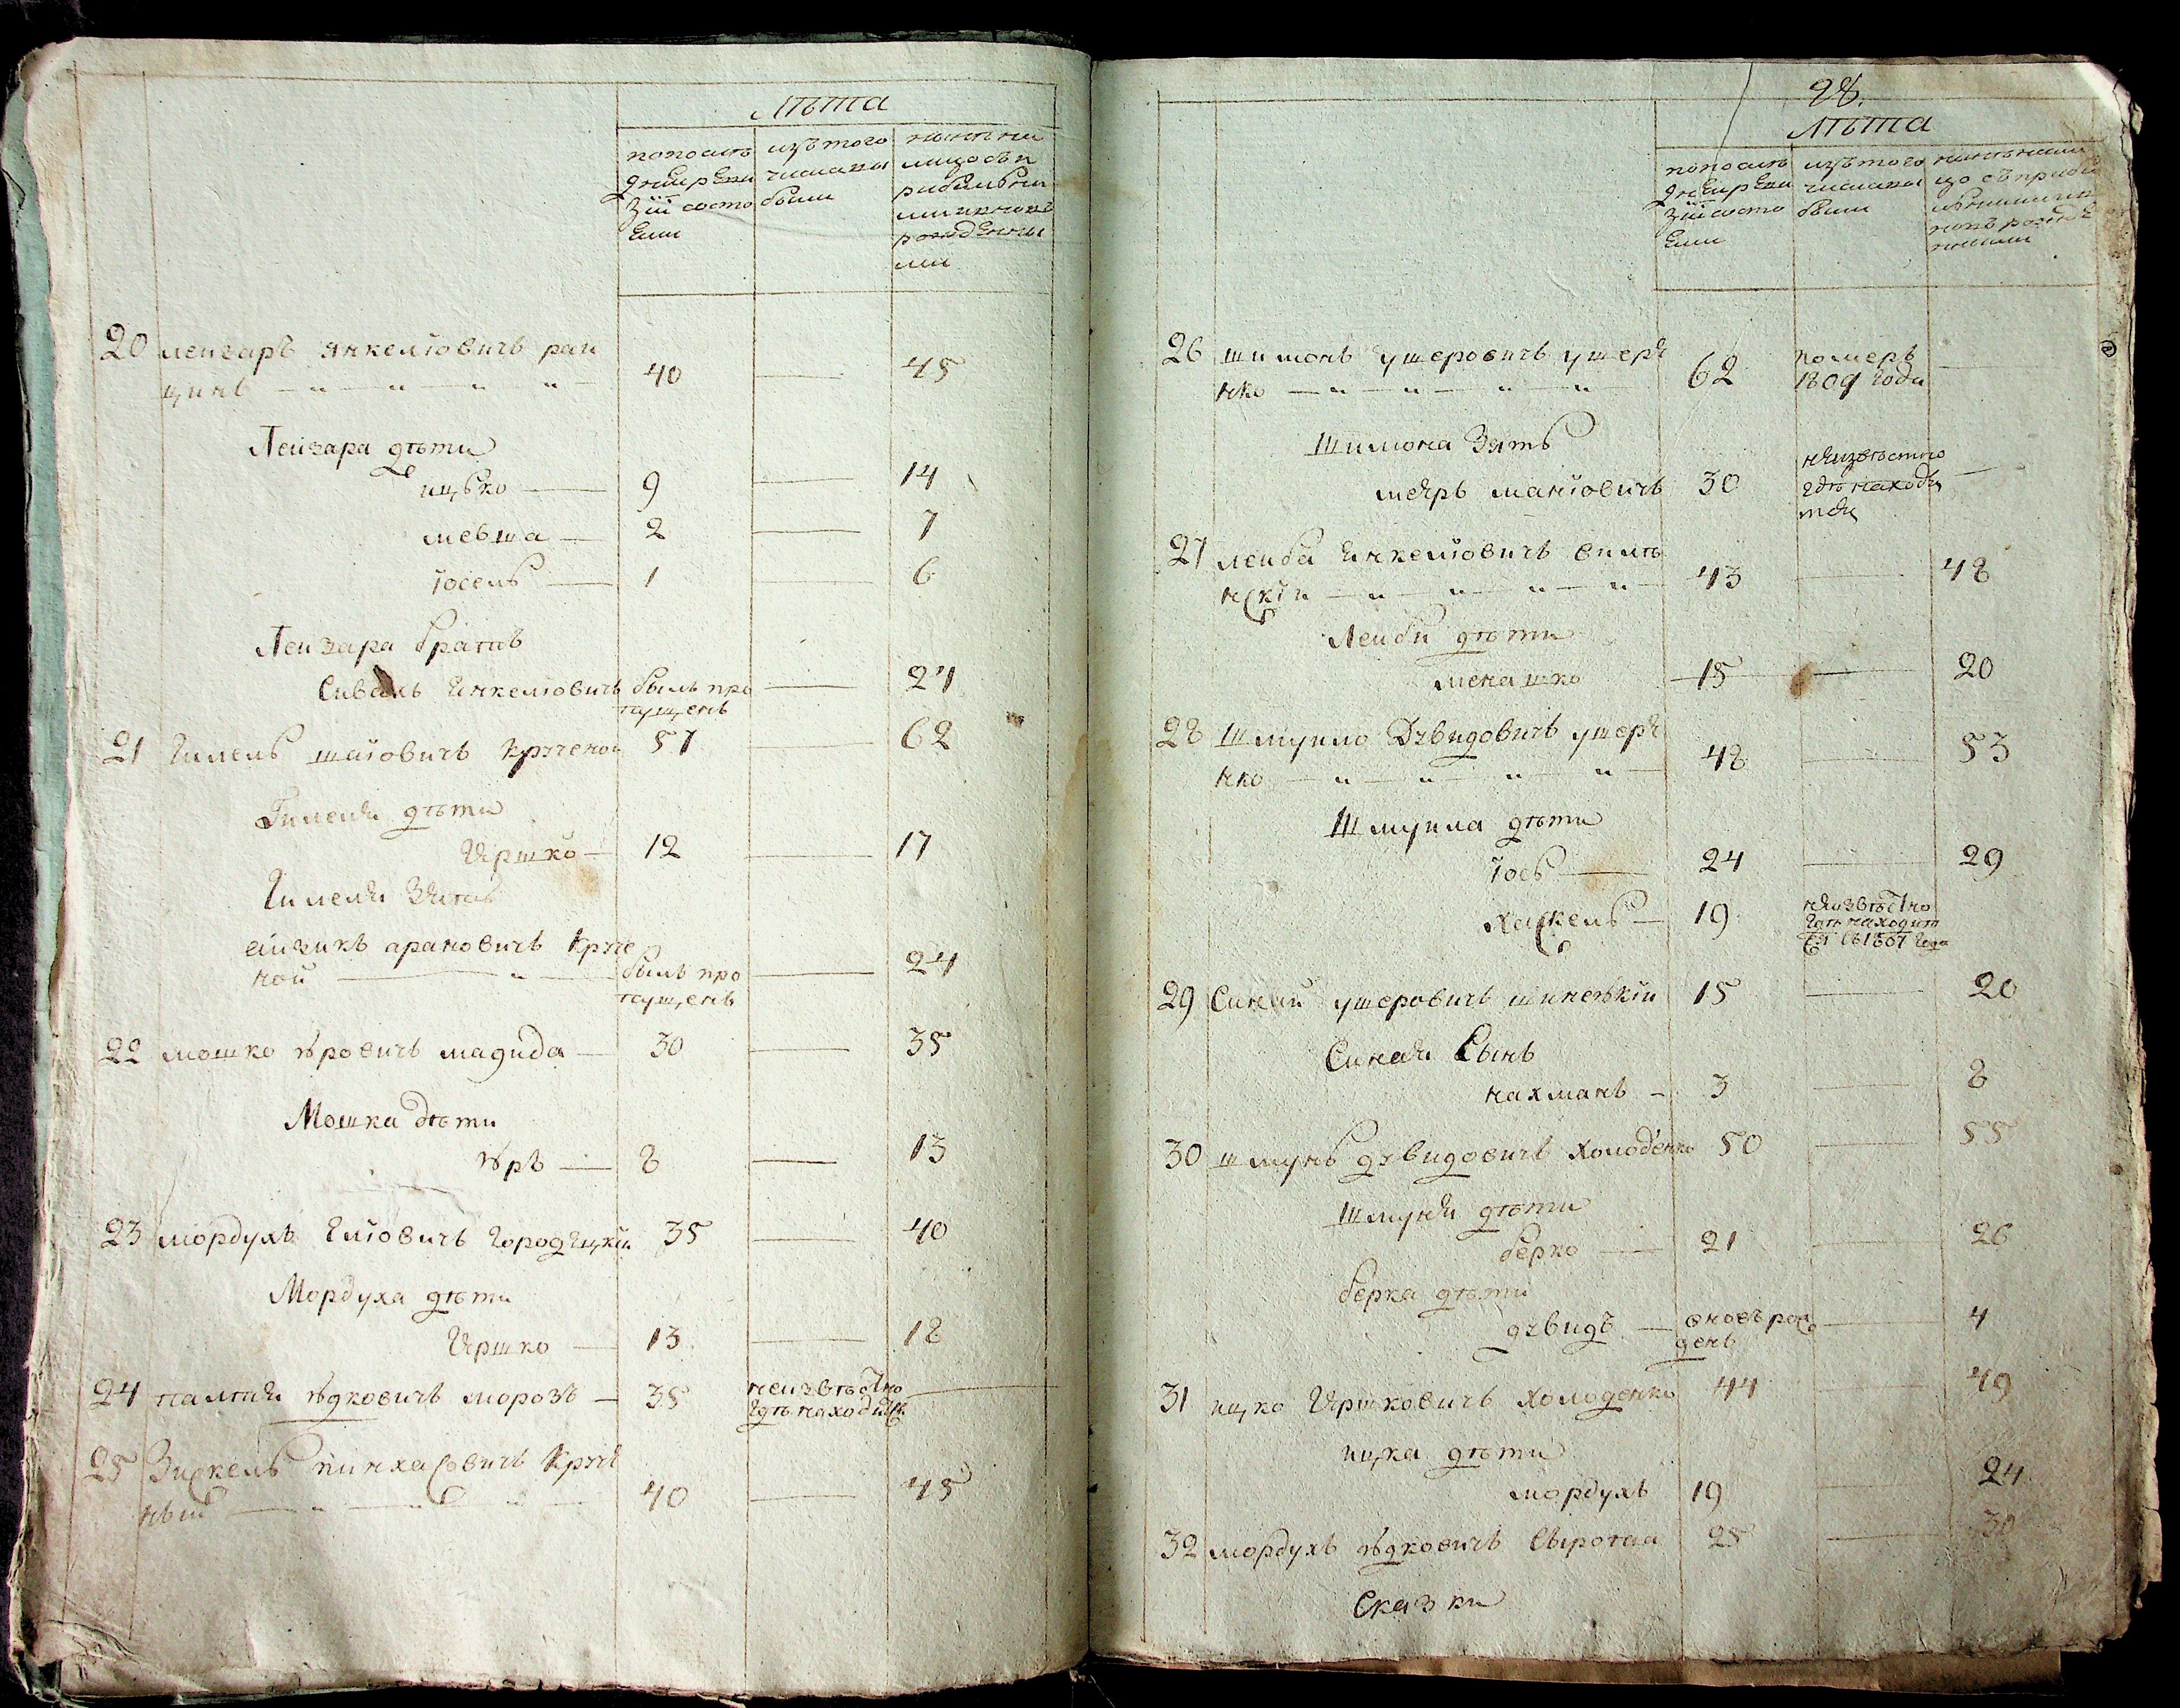 Лѣта
попослѣ
дней реви
зiи состо
яли
изътого
числавы
были
нынѣ на
лицо съ п
рибылым
ми иновъ
рожденны
ми
20 леизаръ янкелiовичъ раи
цинъ 40 — 45
Леизара дѣти
ицько — 9 — 14
левша — 2 — 7
iосель — 1 — 6
Леизара братъ
Янкелiовичъ былъ про — 24
пущенъ
21 Гилель шаiовичъ кручено 57 — 62
Гилеля дѣти
Гершко — 12 — 17
Гилеля Зять
аизикъ арановичъ круче
ной — былъ про — 24
пущенъ
22 мошко ѣровичъ магида — 30 — 35
Мошка дѣти
ѣръ — 8 — 13
23 мордухъ Елiовичъ городецки 35 — 40
Мордуха дѣти
Гершко — 13 — 18
24 ѣдковичъ морозъ — 35 неизвѣстно —
гдѣ находится
25 Зискель пинхасовичъ Круче
ный 40 — 45
98.
Лѣта
попослѣ
дней реви
зiи состо
яли
изътого
числавы
были
нынѣ нали
цо съ прибы
лыми ии
новъ рожде
нными
26 шимонъ ушеровичъ ушере
нко 62 померъ —
1809 года
Шимона Зять
меяръ манiовичъ 30 неизвѣстно —
гдѣ находи
тся
27 леиба Янкелiовичъ вилѣ
нскiи 43 — 48
Леиби дѣти
менашко — 15 — 20
28 Шмуило Давидовичъ ушере
нко 48 — 53
Шмуила дѣти
iось — 24 — 29
Хаскель — 19 неизвѣстно
гдѣ находит
ся съ 1807 года
29 Синаи ушеровичъ 15 — 20
Синая Сынъ
нахманъ — 3 — 8
30 шмунь давидовичъ Холоденко 50 — 55
Шмуня дѣти
берко — 21 — 26
берка дѣти
давидъ — вновь рож — 4
денъ
31 ицко Гершковичъ холоденко 44 — 49
ицка дѣти
мордухъ 19 — 24
32 мордухъ ѣдковичъ Сыротаа 25 — 30
Сказки